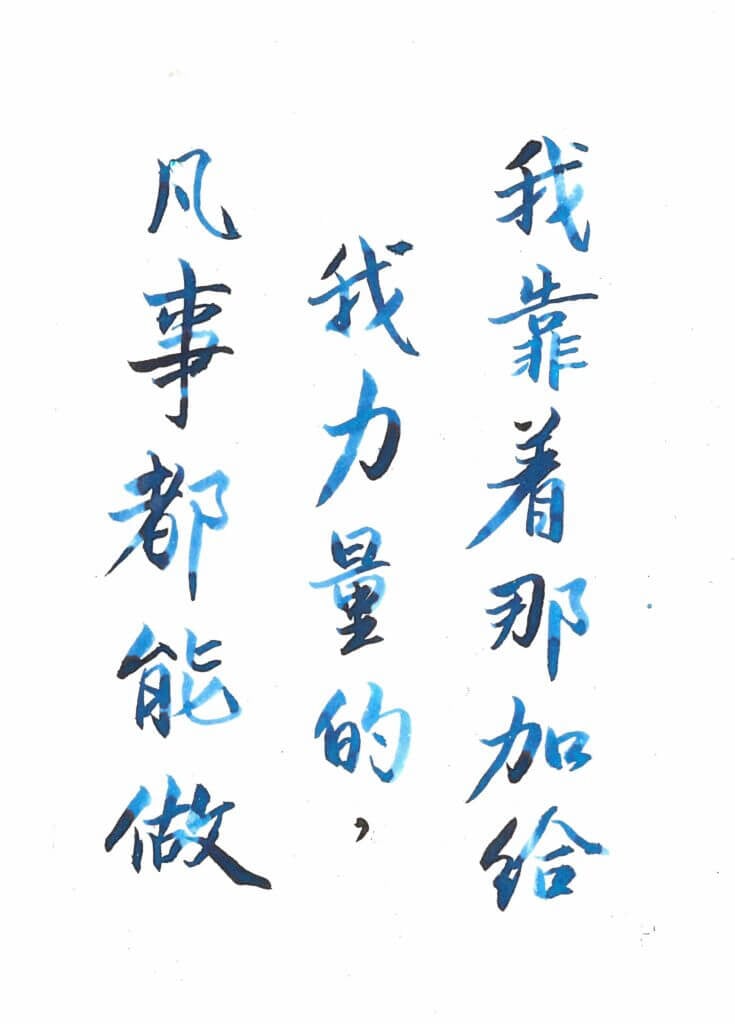 我靠着那加给
我力量的，
凡事都能做